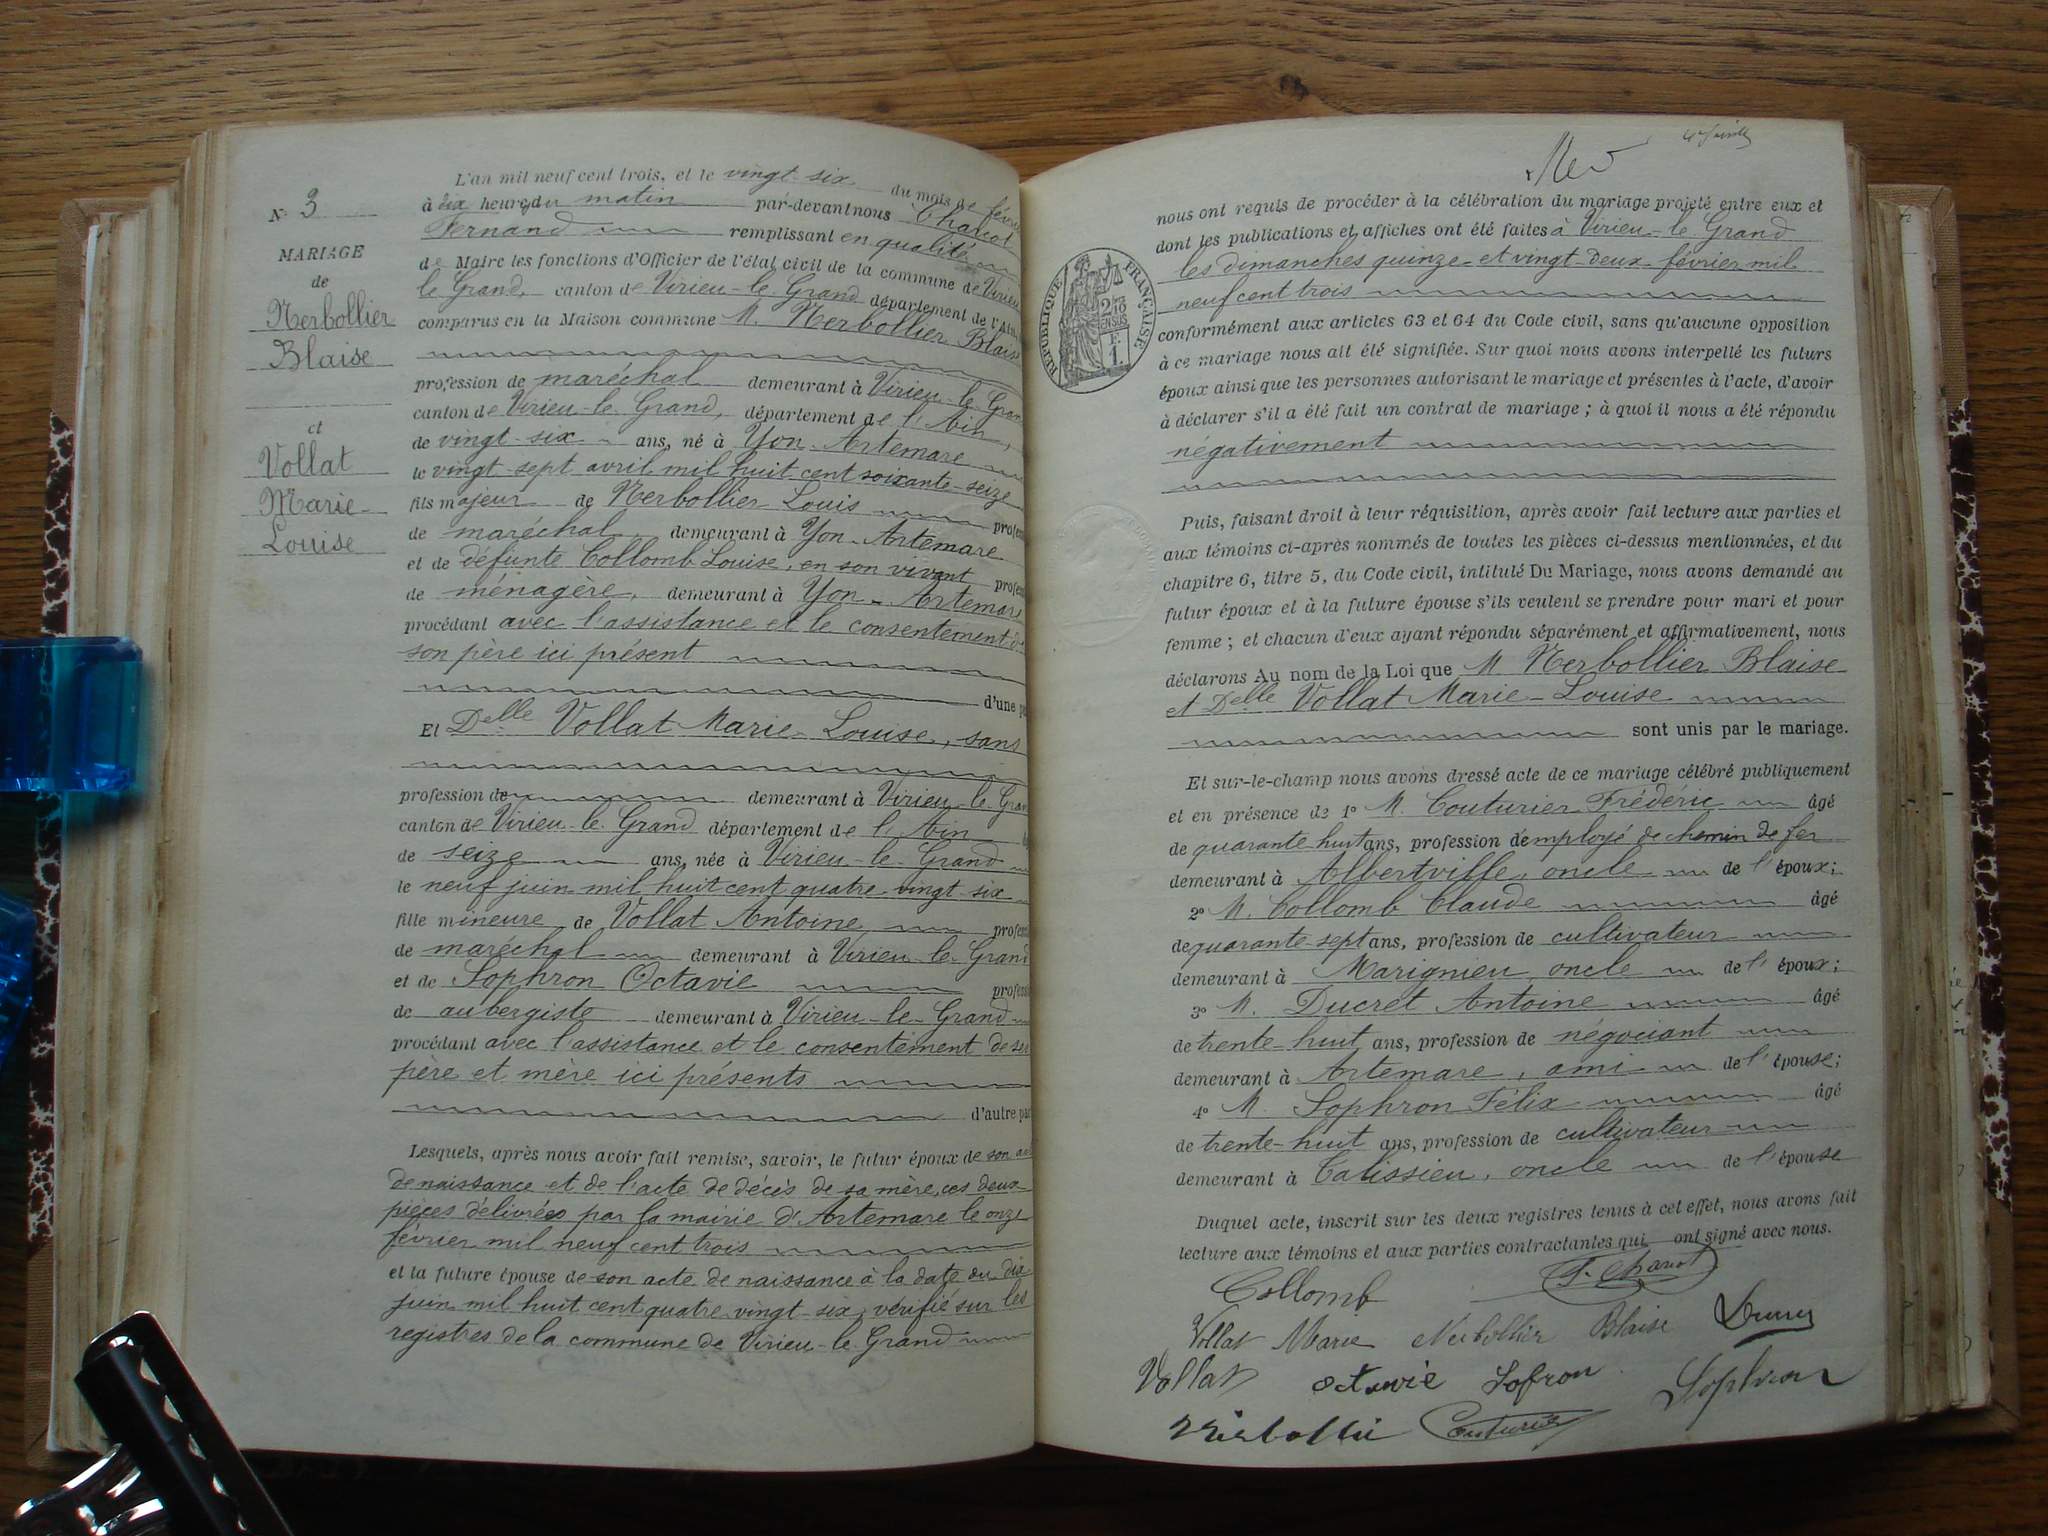 N° 3
MARIAGE
de
Nerbollier
Blaise
et
Vollat
Marie-
Louise
L'an mil neuf cent trois, et le vingt-six du mois de févri
à dix heures du matin par-devant nous Chanot
Fernand remplissant en qualité
de Maire les fonctions d'Officier de l'état civil de la commune de Virieu
le Grand, canton de Virieu-le-Grand département de l'Ain
comparus en la Maison commune M. Nerbollier Blaise
profession de maréchal demeurant à Virieu-le-Gran
canton de Virieu-le-Grand, département de l'Ain,
de vingt-six ans, né à Yon-Artemare
le vingt-sept avril mil huit cent soixante-seize
fils majeur de Nerbollier Louis profes
de maréchal demeurant à Yon-Artemare
et de défunte Collomb Louise, en son vivant profes
de ménagère, demeurant à Yon-Artemare
procédant avec l'assistance et le consentement de
son père ici présent
d'une pa
Et Delle Vollat Marie-Louise, sans
profession de demeurant à Virieu-le-Gran
canton de Virieu-le-Grand département de l'Ain
de seize ans, née à Virieu-le-Grand
le neuf juin mil huit cent quatre-vingt-six
fille mineure de Vollat Antoine profess
de maréchal demeurant à Virieu-le-Grand
et de Sophron Octavie profess
de aubergiste demeurant à Virieu-le-Grand
procédant avec l'assistance et le consentement de ses
père et mère ici présents
d'autre par
Lesquels, après nous avoir fait remise, savoir, le futur époux de son ac
de naissance et de l'acte de décès de sa mère, ces deux
pièces délivrées par la mairie d'Artemare le onze
février mil neuf cent trois
et la future épouse de son acte de naissance à la date du dix
juin mil huit cent quatre-vingt-six, vérifié sur les
registres de la commune de Virieu-le-Grand
nous ont requis de procéder à la célébration du mariage projeté entre eux et
dont les publications et affiches ont été faites à Virieu-le-Grand
les dimanches quinze et vingt-deux février mil
neuf cent trois
conformément aux articles 63 et 64 du Code civil, sans qu'aucune opposition
à ce mariage nous ait été signifiée. Sur quoi nous avons interpellé les futurs
époux ainsi que les personnes autorisant le mariage et présentes à l'acte, d'avoir
à déclarer s'il a été fait un contrat de mariage ; à quoi il nous a été répondu
négativement
RÉPUBLIQUE FRANÇAISE
2/10
EN SUS
F.
1.
Puis, faisant droit à leur réquisition, après avoir fait lecture aux parties et
aux témoins ci-après nommés de toutes les pièces ci-dessus mentionnées, et du
chapitre 6, titre 5, du Code civil, intitulé Du Mariage, nous avons demandé au
futur époux et à la future épouse s'ils veulent se prendre pour mari et pour
femme ; et chacun d'eux ayant répondu séparément et affirmativement, nous
déclarons Au nom de la Loi que M Nerbollier Blaise
et Delle Vollat Marie-Louise
sont unis par le mariage.
Et sur-le-champ nous avons dressé acte de ce mariage célébré publiquement
et en présence de 1° M. Couturier Frédéric âgé
de quarante-huit ans, profession d'employé de chemin de fer
demeurant à Albertville, oncle de l'époux;
2° M. Collomb Claude âgé
de quarante-sept ans, profession de cultivateur
demeurant à Marignieu, oncle de l'époux;
3° M. Ducret Antoine âgé
de trente-huit ans, profession de négociant
demeurant à Artemare, ami de l'épouse;
4° M. Sophron Félix âgé
de trente-huit ans, profession de cultivateur
demeurant à Talissieu, oncle de l'épouse
Duquel acte, inscrit sur les deux registres tenus à cet effet, nous avons fait
lecture aux témoins et aux parties contractantes qui ont signé avec nous.
Collomb F. Chanot
Vollat Marie Nerbollier Blaise
Vollat octavie Sofron Sophron
Couturier